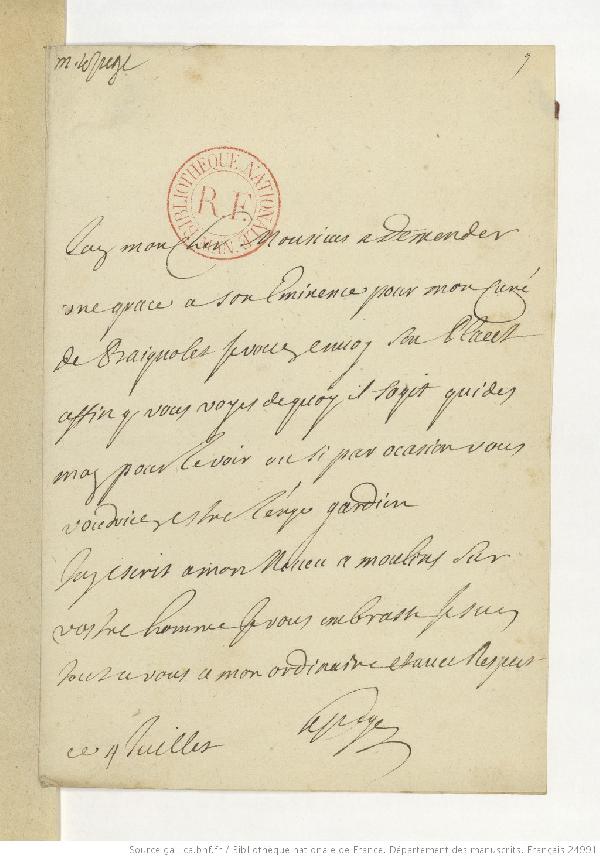 m. le
9
BIBLIOTHEQUE NATIONALE MAN.
R.F.
Jay mon Cher Monsieur a Demender
une grace a son Eminence pour mon Curé
de Jevous envoy son Placet
affin q vous voyes de quoy il sagit guides
moy pour le voir ou si par ocasion vous
voudriez estre gardien
Jay escrit a mon Neveu a moulins sur
vostre homme Je vous embrasse Je suis
tout a vous a mon ordinaire et avec Respect
ce 4 Juillet
Source gallica.bnf.fr / Bibliothèque nationale de France. Département des manuscrits. Français 24991